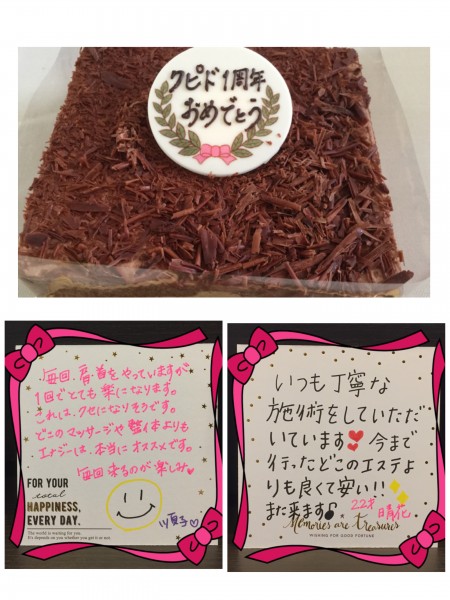 クピド1周年
おめでとう
毎回、肩・首をやっていますが
1回でとても楽になります。
これは、クセになりそうです。
どこのマッサージや整体よりも
エナジーは、本当にオススメです。
毎回来るのが楽しみ♡
順子♡
FOR YOUR
total
HAPPINESS,
EVERY DAY.
The world is waiting for you.
It's depends on you whether you get it or not.
いつも丁寧な
施術をしていただ
いています❣今まで
行ったどこのエステよ
りも良くて安い!!
また来ます♪
22才
晴花
Memories are treasures
WISHING FOR GOOD FORTUNE